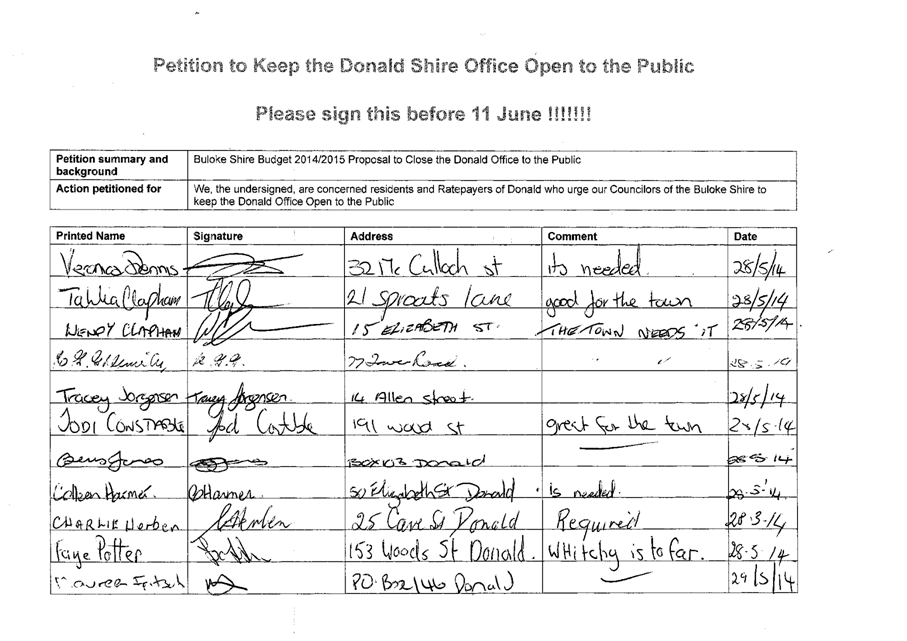 Petition to Keep the Donald Shire Office Open to the Public
Please sign this before 11 June !!!!!!!
Petition summary and background Buloke Shire Budget 2014/2015 Proposal to Close the Donald Office to the Public
Action petitioned for We, the undersigned, are concerned residents and Ratepayers of Donald who urge our Councilors of the Buloke Shire to
keep the Donald Office Open to the Public
Printed Name Signature Address Comment Date
Veronica Dennis 32 Mc Culloch st its needed. 28/5/14
Tahlia Clapham 21 Sproats lane good for the town 28/5/14
WENDY CLAPHAM 15 ELIZABETH ST. THE TOWN NEEDS IT 28/5/14.
Road. " 28.5.14
Tracey Jorgensen Tracey Jorgensen. 14 Allen street. 28/5/14
JODI CONSTABLE 191 wood st great for the town 28/5.14
Jones BOX 103 DONALD 28 5 14
Colleen Harmer. CHarmer. 50 Elizabeth St Donald is needed. 28.5.14.
CHARLIE Herben 25 St Donald Required 28.3.14
Faye Potter 153 Woods St Donald. WHitchy is to far. 28.5.14
Maureen Fritsch PO. Box 146 Donald 29/5/14